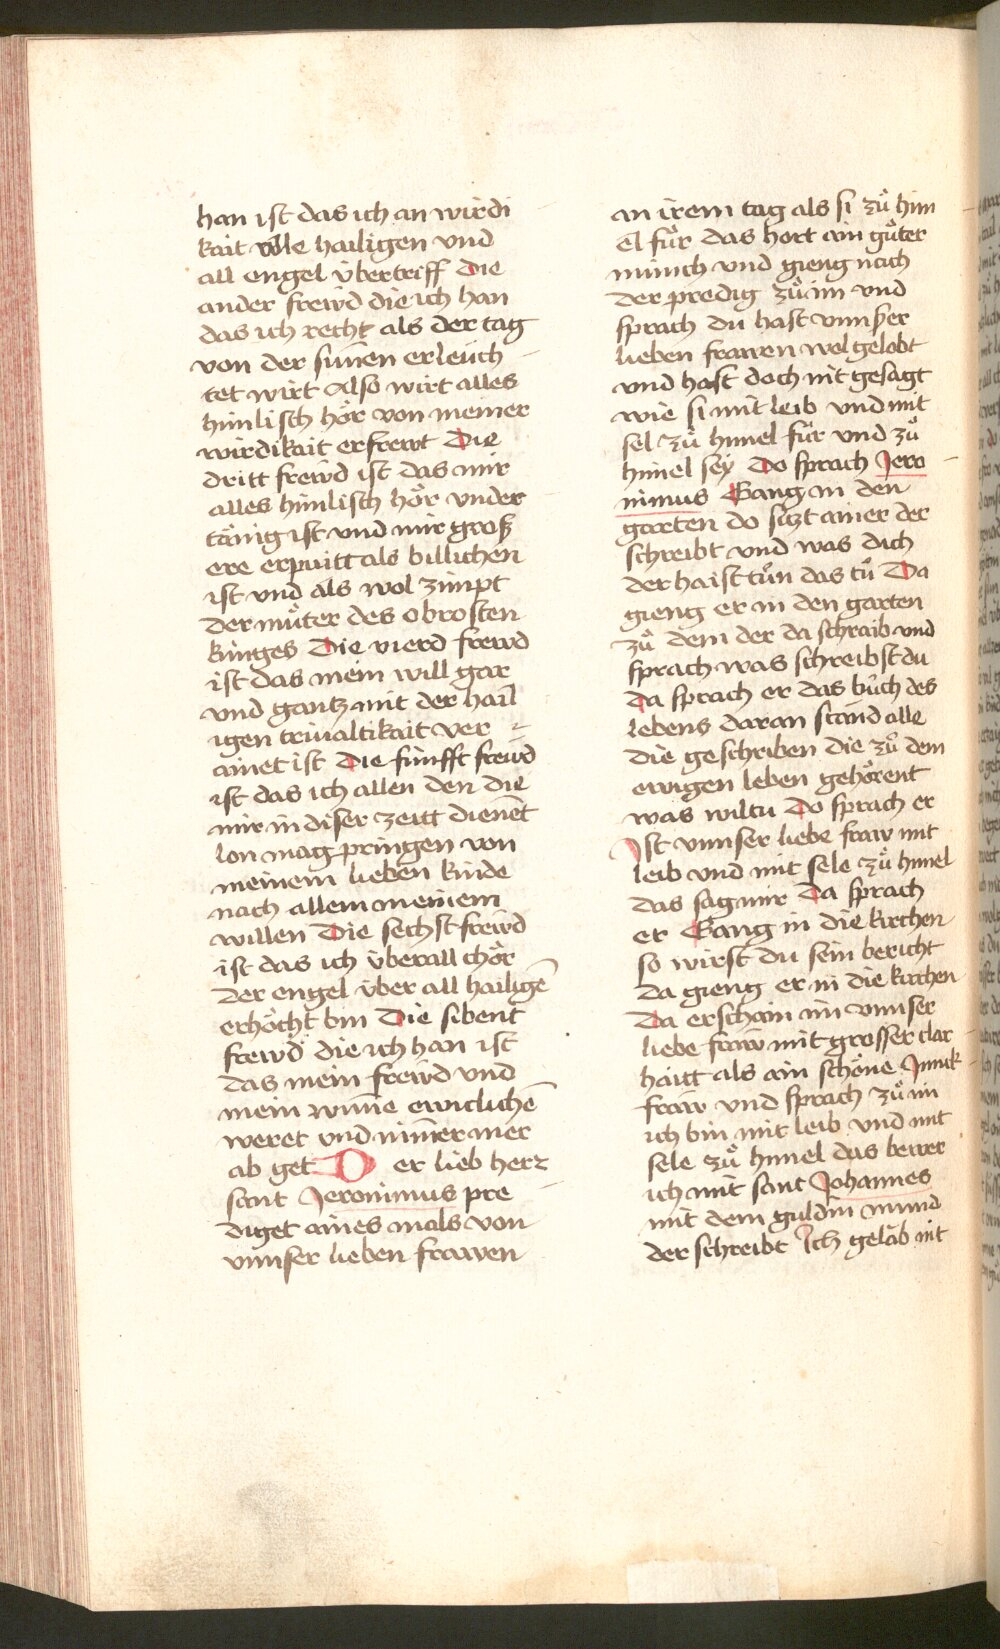 han ist das ich an wirdi
kait alle hailigen vnd
all engel übertriff Die
ander frewd die ich han
das ich recht als der tag
von der sunen erleüch
tet wirt Also wirt alles
himlisch hör von meiner
wirdikait erfrewt Die
dritt frewd ist das mir
alles himlisch hör vnder
tänig ist vnd mir groß
ere erpuitt als billichen
ist vnd als wol zimpt
Der můter des obrosten
kinges Die vierd frewd
ist das mein will gar
vnd gantz mit der hail
igen triualtikait ver
ainet ist Die fünfft frewd
ist das ich allen den die
mir in diser zeitt dienēt
lon mag pringen von
meinem lieben kinde
nach allem meinem
willen Die sechst frewd
ist das ich überall chör
Der engel über all hailigē
erhöcht bin Die sibent
frewd die ich han ist
das mein frewd vnd
mein wune ewiclichē
weret vnd nimer mer
ab get Der lieb herz
sant Jeronimus pre
diget aines mals von
vnnser lieben frawen
an irem tag als si zů him
el fůr das hort ain gůter
münch vnd gieng nach
Der predig zů im vnd
sprach du hast vnnser
lieben frawen wol gelobt
vnd hast doch nit gesagt
wie si mit leib vnd mit
sel zů himel für vnd zů
himel sey Do sprach Jero
nimus Gang in den
garten do sitzt ainer der
schreibt vnd was dich
der haist tůn das tů Da
gieng er in den garten
zů dem der da schraib vnd
sprach was schreibst du
Da sprach er das bůch des
lebens daran stand alle
Die geschriben die zů dem
ewigen leben gehörent
was wiltu Do sprach er
Ist vnnser liebe fraw mit
leib vnd mit sele zů himel
das sag mir Da sprach
er Gang in die kirchen
so wirst du sein bericht
Da gieng er in die kirchen
Da erschain im vnnser
liebe fraw mit grosser clar
haitt als ain schöne Junck
fraw vnd sprach zů im
ich bin mit leib vnd mit
sele zů himel das bewer
ich mit sant Johannes
mit dem guldin mund
der schreibt Ich gelab nit